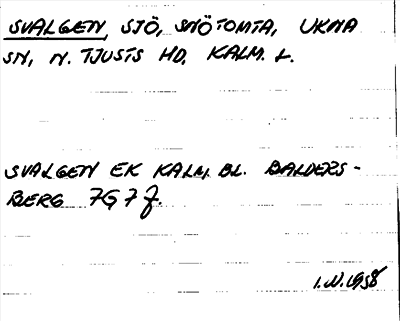 SVALGEN, SJÖ, SNÖTOMTA, UKNA
SN, N. TJUSTS HD, KALM. L.
SVALGEN EK KALM. BL. BALDERS-
BERG 7G7f.
1.VI.1958